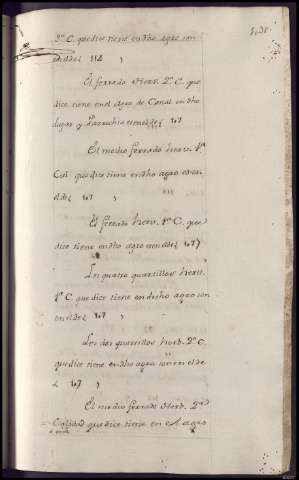 2ª C. que dice tiene en dho agro con
en el de l 112
El ferrado Herv. 2ª C. que
dice tiene en el agro de Canal en dho
lugar y Parrochia 107
El medio ferrado herv. 1ª
Cal. que dice tiene en dho agro con en
el de l 107
El ferrado herv. 1ª C. que
dice tiene en dho agro con en el de l 107
Los quatro quartillos herv.
1ª C. que dice tiene en dicho agro con
en el de l 107
Los dos quartillos herb. 2ª C.
que dice tiene en dho agro con en el de
l 107
El medio ferrado Herb. 2ª
Calidad que dice tiene en el agro